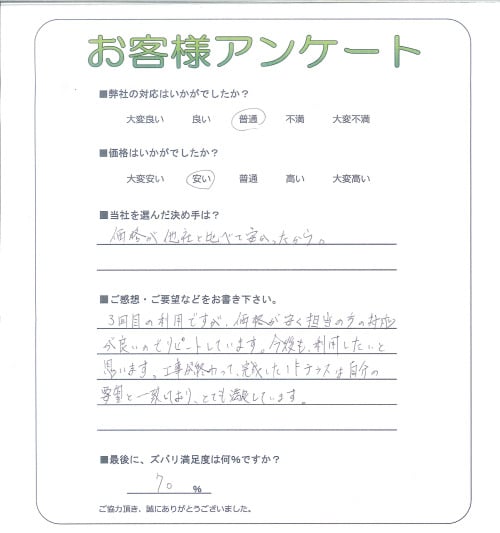 お客様アンケート
■弊社の対応はいかがでしたか？
大変良い 良い 普通 不満 大変不満
■価格はいかがでしたか？
大変安い 安い 普通 高い 大変高い
■当社を選んだ決め手は？
価格が他社と比べて安かったから。
■ご感想・ご要望などをお書き下さい。
3回目の利用ですが、価格が安く担当の方の対応
が良いのでリピートしています。今後も、利用したいと
思います。工事が終わって、完成した テラスは自分の
要望と一致しており、とても満足しています。
■最後に、ズバリ満足度は何％ですか？
70 ％
ご協力頂き、誠にありがとうございました。